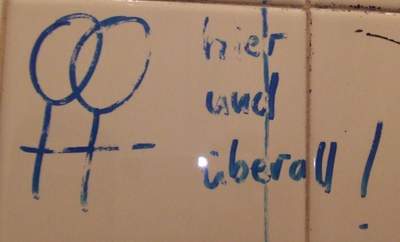 hier
und
überall!